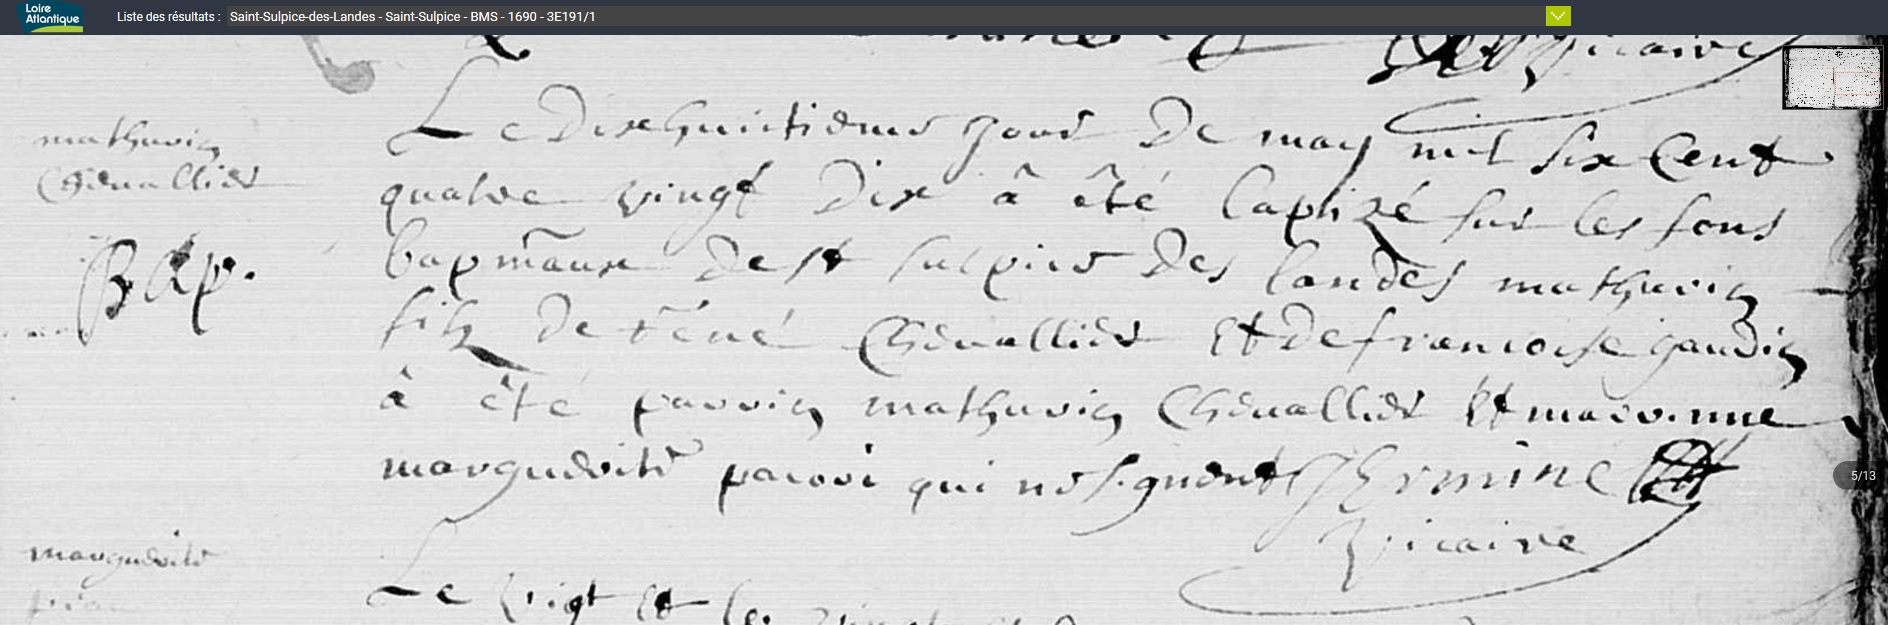 Loire
Atlantique
Liste des résultats : Saint-Sulpice-des-Landes - Saint-Sulpice - BMS - 1690 - 3E191/1
vicaire
mathurin
Chevallier
Bap.
Le dixhuictiemе jour de may mil six cent
quatre vingt dix â êté baptizé sur les fons
bapmaux de st sulpice des landes mathurin
filz de réné Chevallier et de francoise gaudin
â êté parrin mathurin Chevallier et maronne
marguerite paroui qui ne signent Jermine
vicaire
5/13
marguerite
Le vigt et